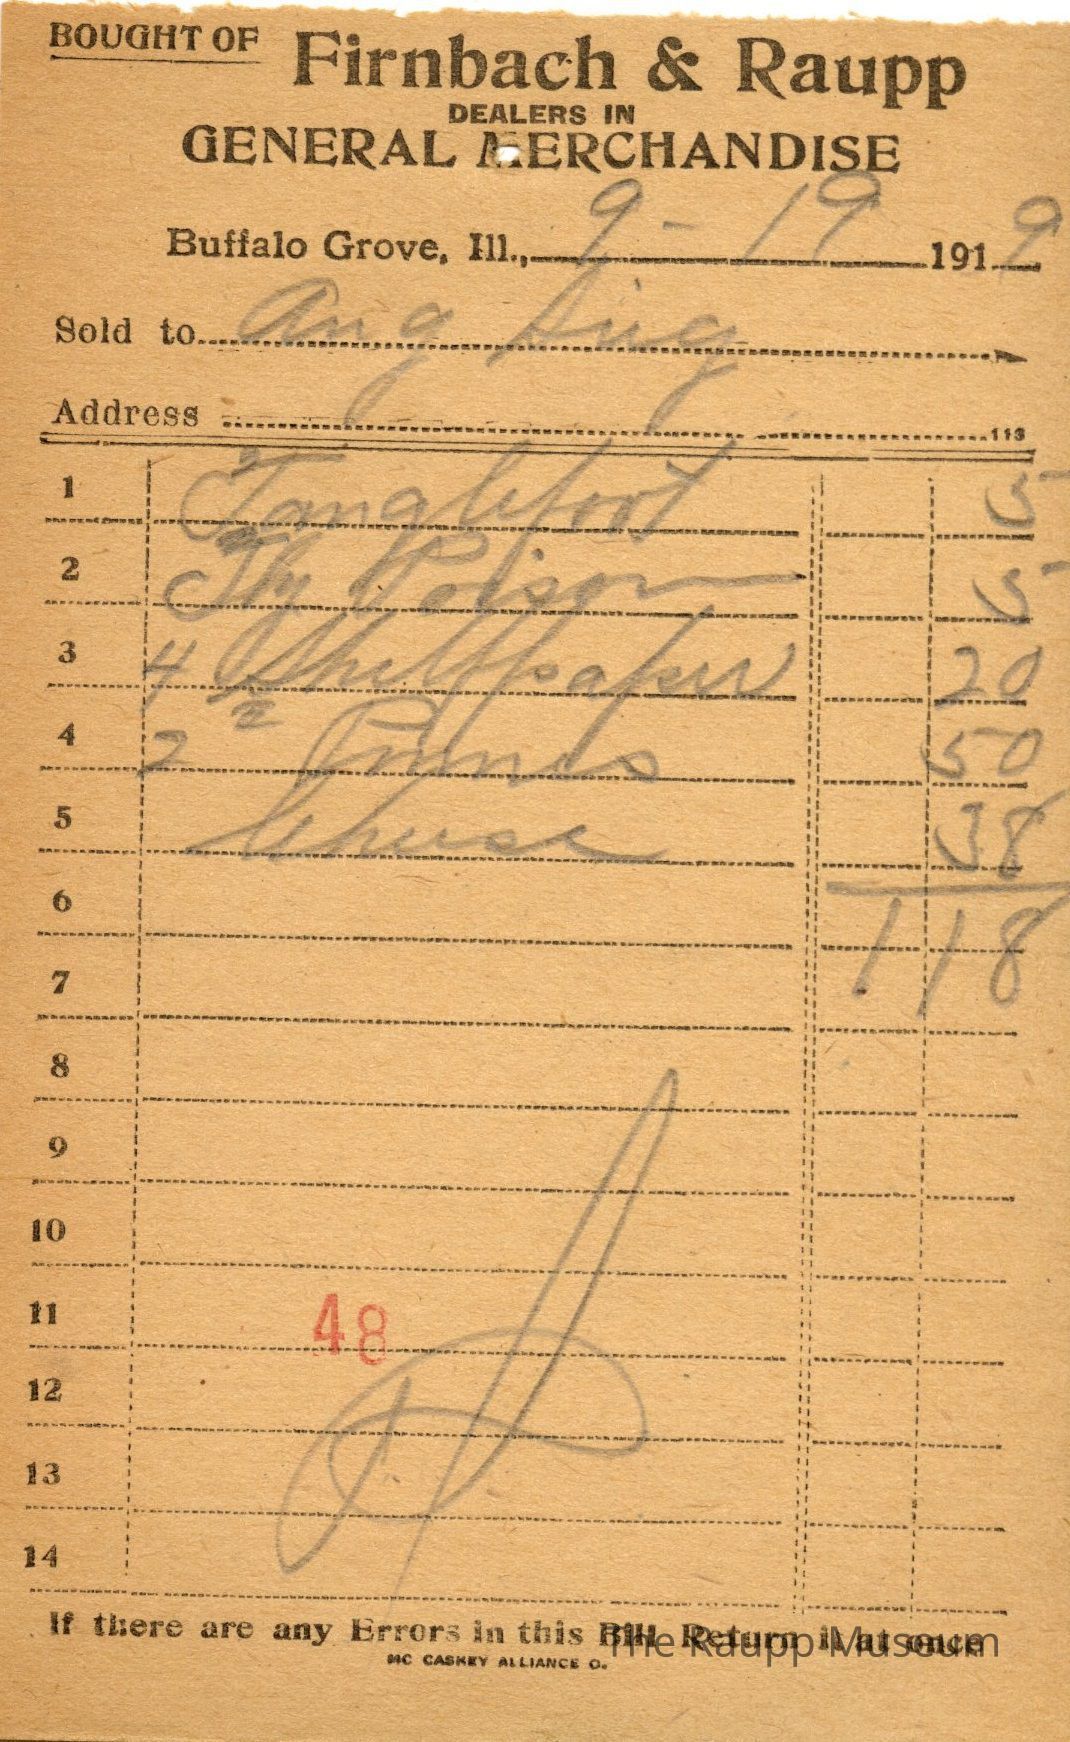 BOUGHT OF Firnbach & Raupp
DEALERS IN
GENERAL MERCHANDISE
Buffalo Grove, Ill., 9-19 1919
Sold to Aug
Address 113
1 Tanglefoot 5
2 Fly Poison 5
3 4 Shelfpaper 20
4 2 Prunes 50
5 38
6 118
7
8
9
10
11 48
12
13
14
If there are any Errors in this Bill Return it at once
MC CASKEY ALLIANCE O.
The Raupp Museum